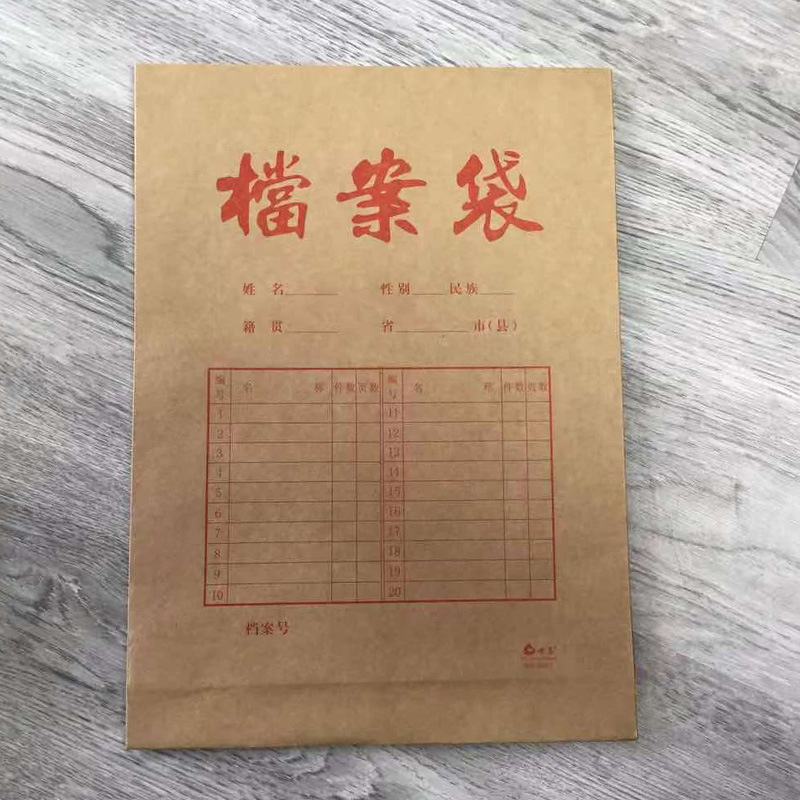 檔案袋
姓 名______ 性别____民族____
籍 贯______ 省________市(县)
编号 名 称 件数 页数 编号 名 称 件数 页数
1 11
2 12
3 13
4 14
5 15
6 16
7 17
8 18
9 19
10 20
档案号